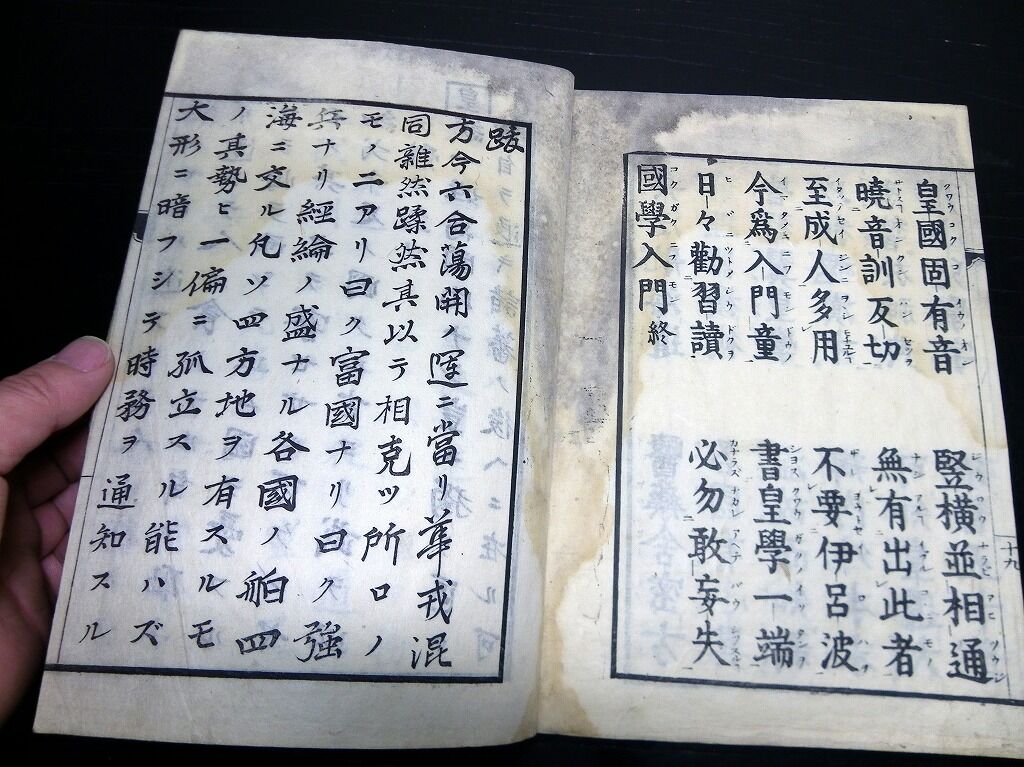 皇國固有音 竪橫並相通
曉音訓反切 無有出此者
至成人多用 不要伊呂波
今爲入門童 書皇學一端
日々勸習讀 必勿敢妄失
國學入門終
十九
跋
方今六合蕩開ノ運ニ當リ華戎混
同雜然蹂然其以テ相克ツ所ロノ
モノ二アリ曰ク富國ナリ曰ク強
兵ナリ經綸ノ盛ナル各國ノ舶四
海ニ交ル凡ソ四方地ヲ有スルモ
ノ其勢ヒ一偏ニ孤立スル能ハズ
大形ニ暗フシテ時務ヲ通知スル